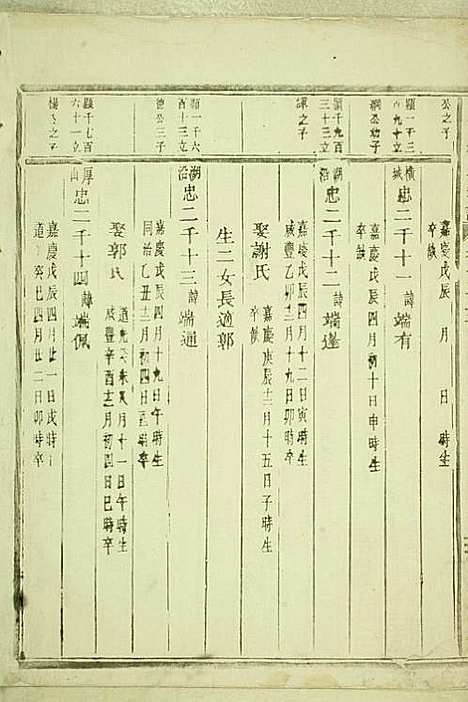 公之子
嘉慶戊辰 月 日 時生
卒缺
橫城
忠二千十一諱端有
嘉慶戊辰四月初十日申時生
卒缺
潤公幼子
湖沿
忠二千十二諱端達
三十三立
嘉慶戊辰四月十二日寅時生
咸豐壬卯十二月十九日卯時
之子
娶謝氏
嘉慶庚辰三月十五日子時生
卒缺
生二女長適郭
湖沿
忠二千十三諱端通
類一千六
百十三立
德公三子
嘉慶戊辰四月十九日午時生
同治乙丑十二月初四日 時卒
娶郭氏
道光 未 月十一日午時生
咸豐辛酉十二月初四日巳時卒
厚山
忠二千十四諱端佩
顯千七百
六十一立
楊公之子
嘉慶戊辰四月廿一日戌時
道 癸巳四月廿二日卯時卒